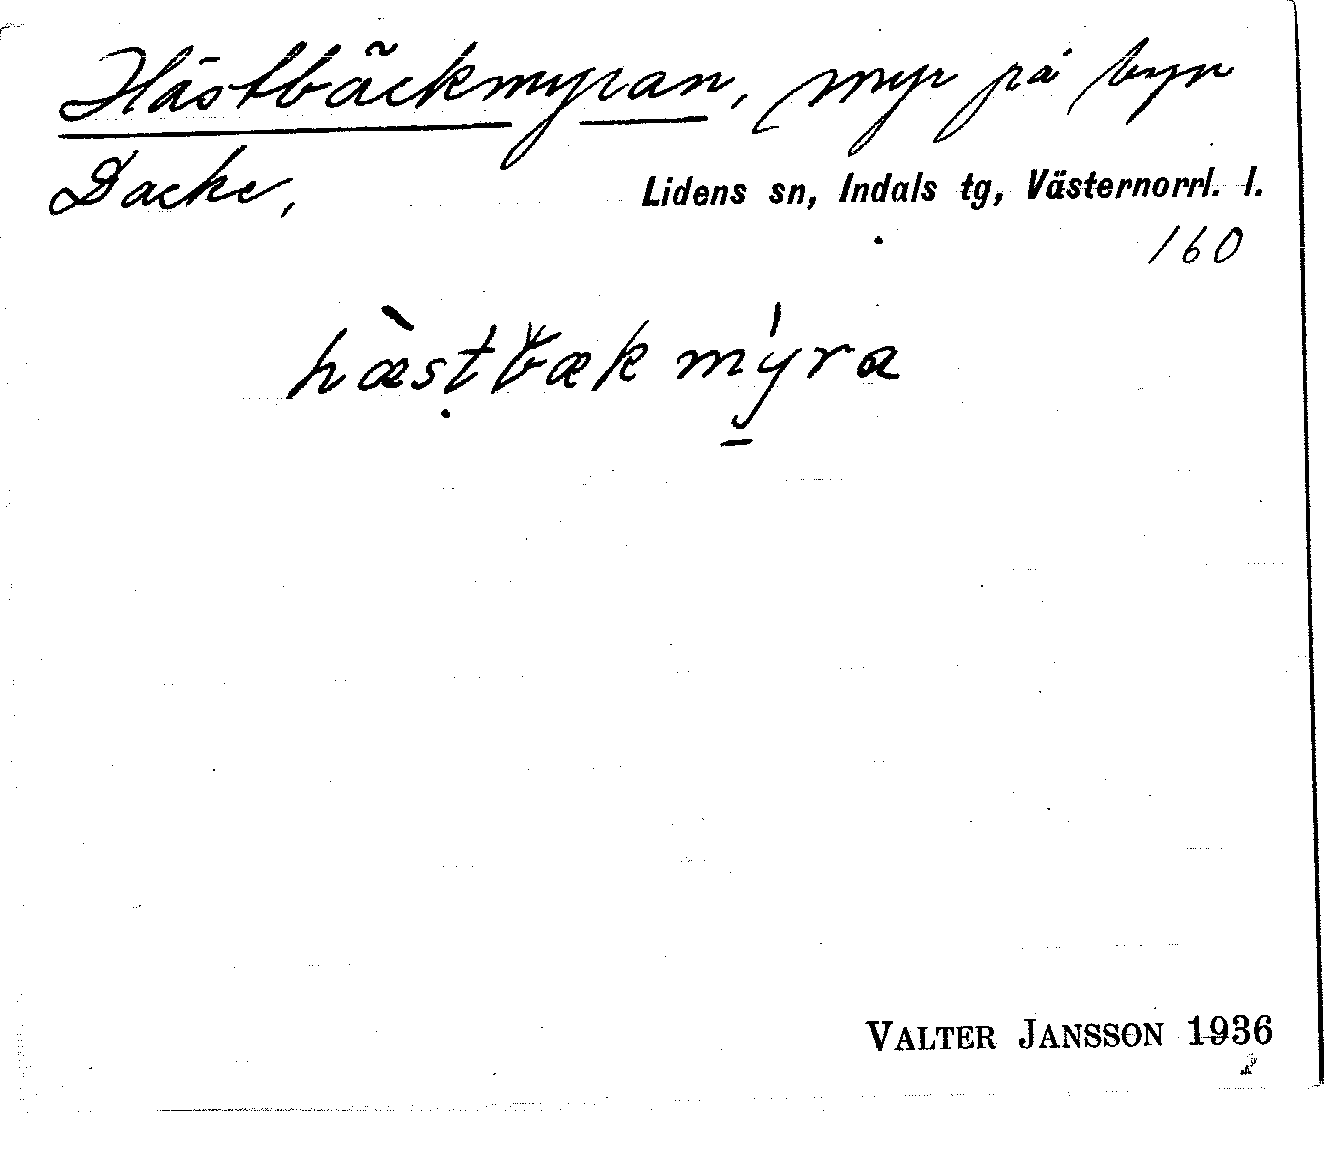 Hästbäckmyran, myr på byn
Dacke,
Lidens sn, Indals tg, Västernorrl. l.
160
hæ̀stbækmýra
VALTER JANSSON 1936